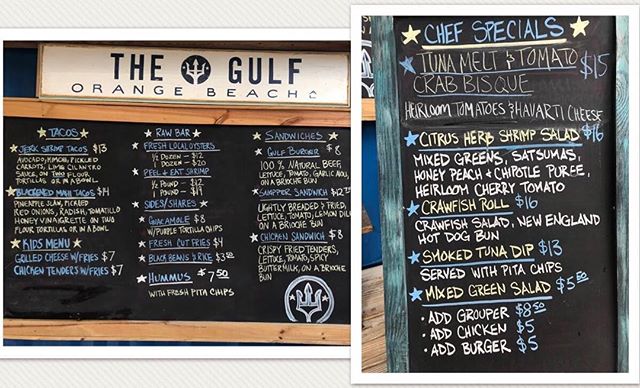 THE GULF
ORANGE BEACH
TACOS
JERK SHRIMP TACOS $13
AVOCADO, KIMCHI, PICKLED
CARROTS, LIME CILANTRO
SAUCE, ON TWO FLOUR
TORTILLAS OR IN A BOWL
BLACKENED MAHI TACOS $14
PINEAPPLE SLAW, PICKLED
RED ONIONS, RADISH, TOMATILLO
HONEY VINAIGRETTE ON TWO
FLOUR TORTILLAS OR IN A BOWL
KIDS MENU
GRILLED CHEESE W/ FRIES $7
CHICKEN TENDERS W/ FRIES $7
RAW BAR
FRESH LOCAL OYSTERS
1/2 DOZEN - $12
1 DOZEN - $20
PEEL & EAT SHRIMP
1/2 POUND - $12
1 POUND -
SIDES/SHARES
GUACAMOLE $8
W/ PURPLE TORTILLA CHIPS
FRESH CUT FRIES $4
BLACK BEANS & RICE $3.50
HUMMUS $7.50
WITH FRESH PITA CHIPS
SANDWICHES
GULF BURGER $8
100% NATURAL BEEF,
LETTUCE, TOMATO, GARLIC AIOLI,
ON A BRIOCHE BUN
SANDWICH
LIGHTLY BREADED & FRIED,
LETTUCE, TOMATO, LEMON DILL
ON A BRIOCHE BUN
CHICKEN SANDWICH $8
CRISPY FRIED TENDERS,
LETTUCE, TOMATO, SPICY
BUTTERMILK, ON A BRIOCHE
BUN
CHEF SPECIALS
TUNA MELT & TOMATO $15
CRAB BISQUE
HEIRLOOM TOMATOES & HAVARTI CHEESE
CITRUS HERB SHRIMP SALAD $16
MIXED GREENS, SATSUMAS,
HONEY PEACH & CHIPOTLE PUREE,
HEIRLOOM CHERRY TOMATO
CRAWFISH ROLL $16
CRAWFISH SALAD, NEW ENGLAND
HOT DOG BUN
SMOKED TUNA DIP $13
SERVED WITH PITA CHIPS
MIXED GREEN SALAD $5.50
• ADD GROUPER $8.50
• ADD CHICKEN $5
• ADD BURGER $5